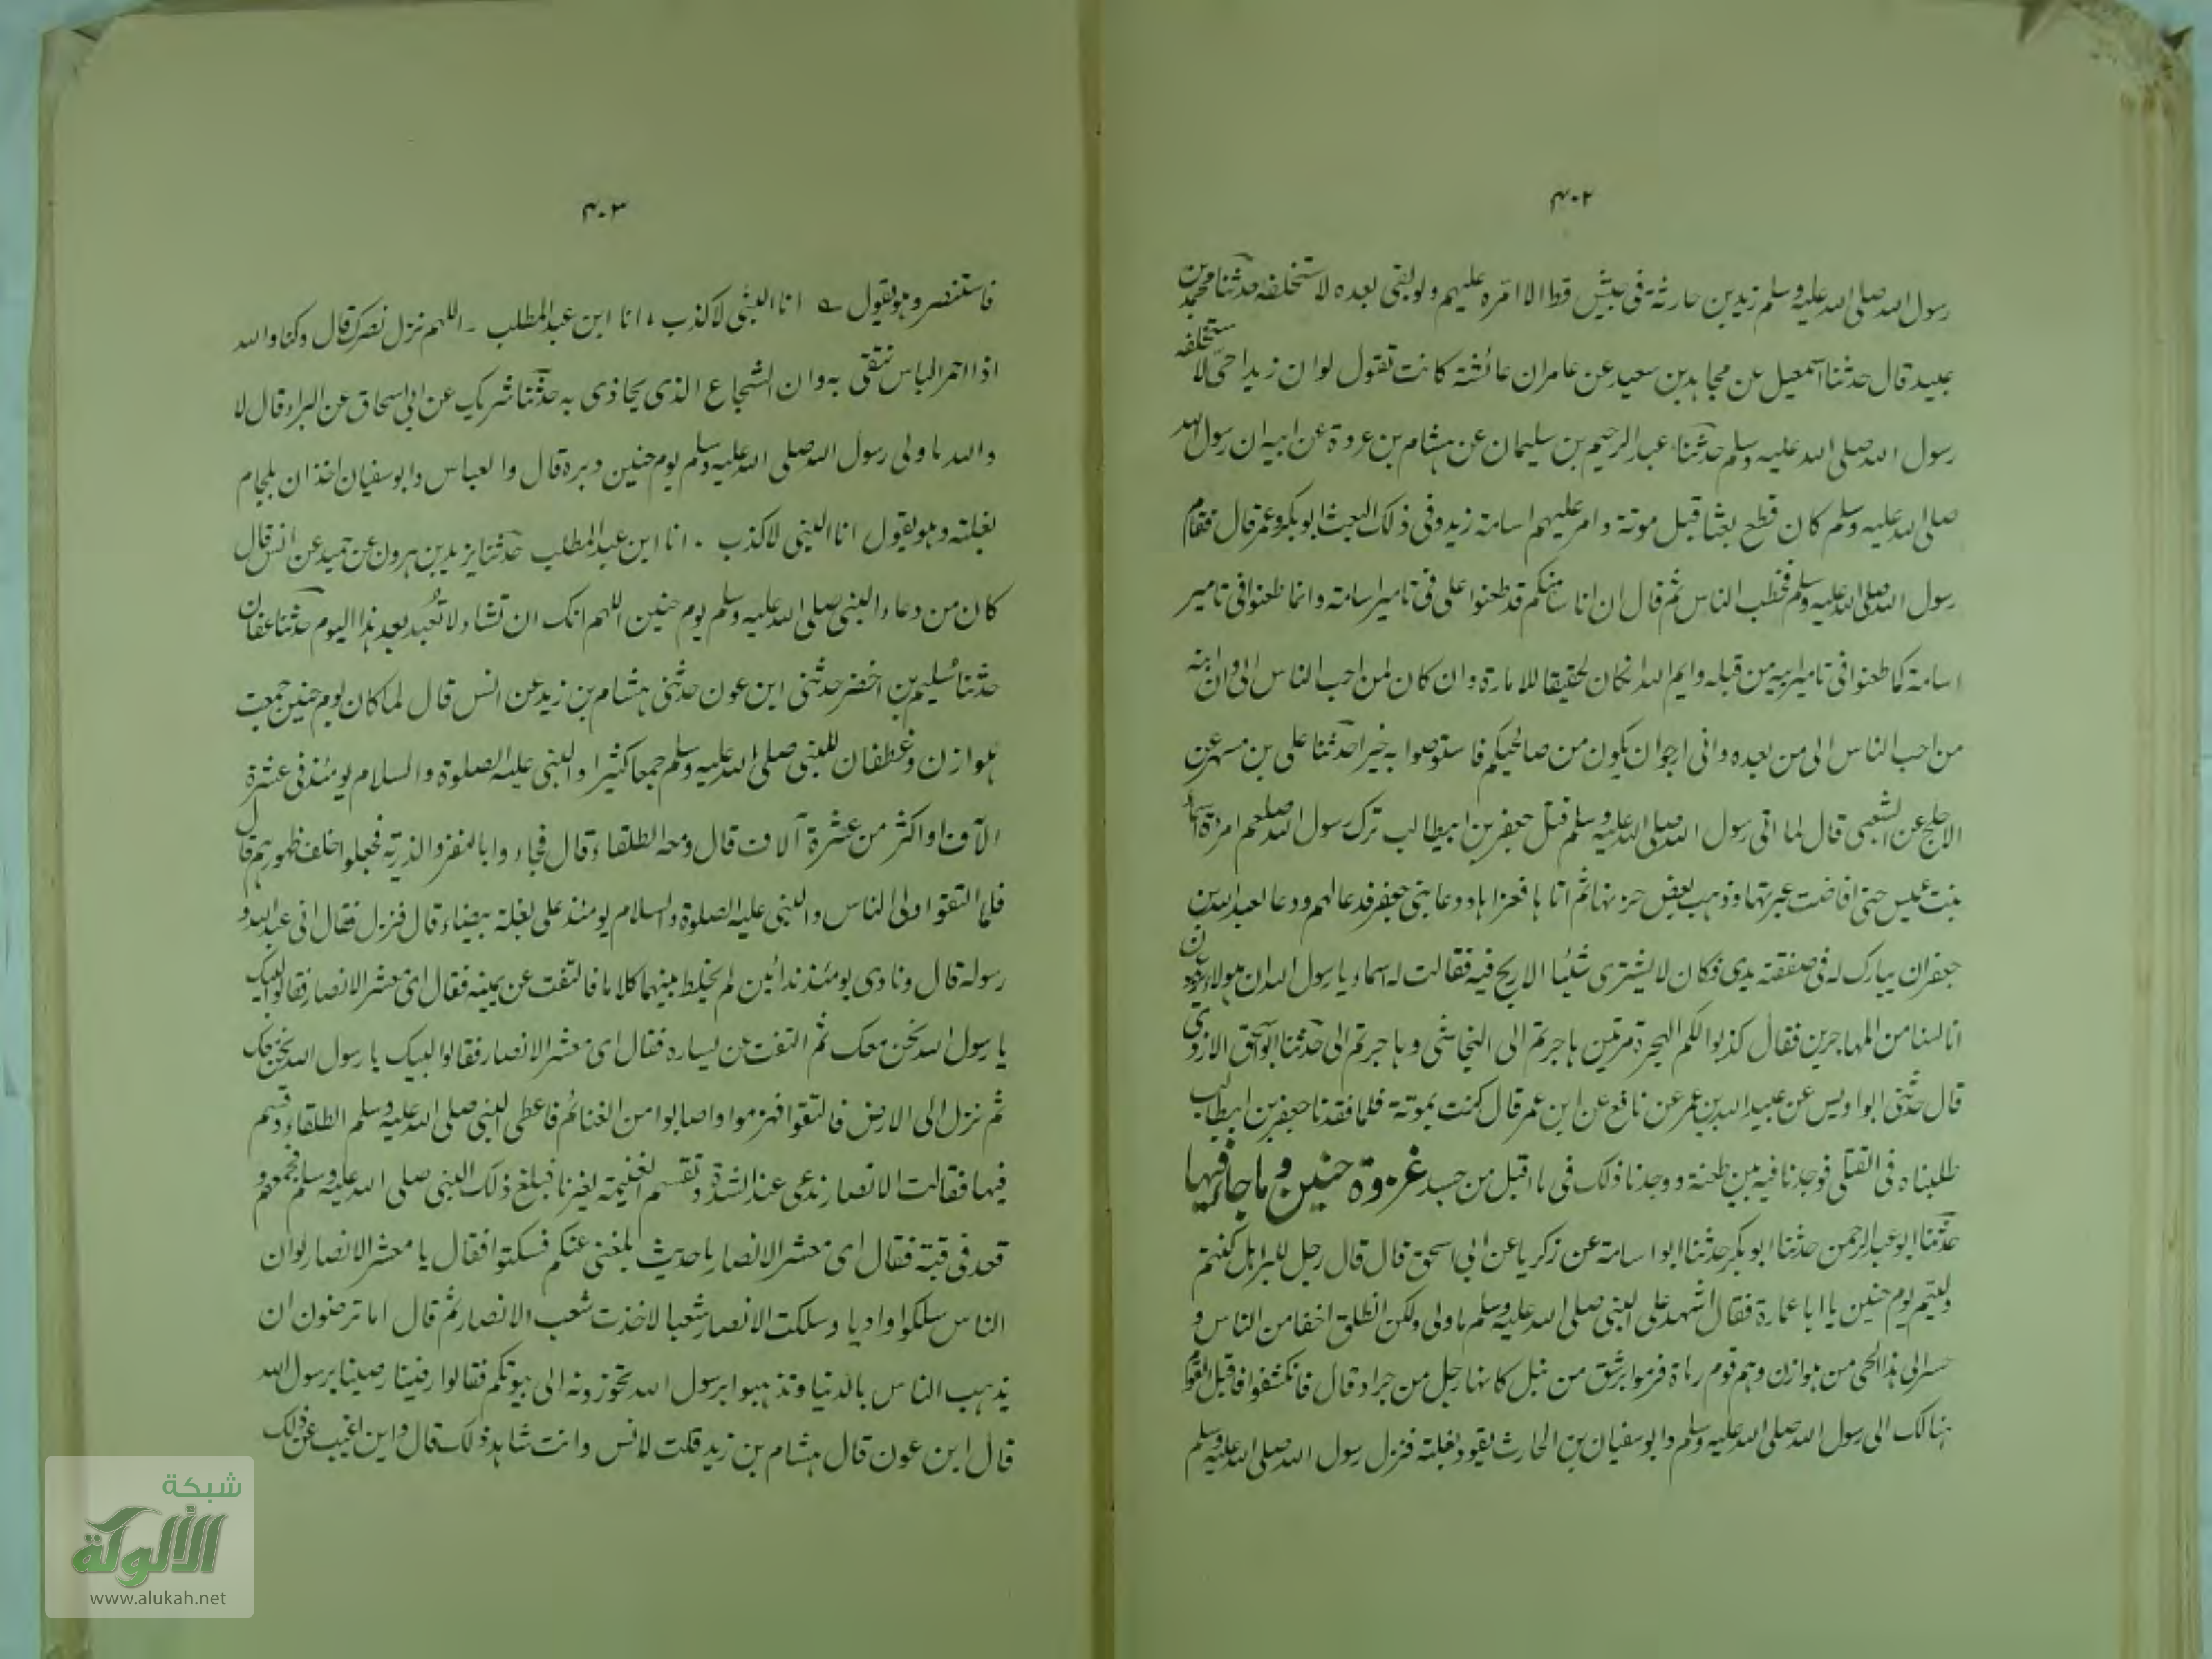 ٤٠٢
رسول الله صلى الله عليه وسلم زيد بن حارثة فى جيش قط الا امّره عليهم ولو بقى بعده لاستخلفه حدثنا محمد بن
عبيد قال حدثنا اسمعيل عن مجاهد بن سعيد عن عامر ان عائشة كانت تقول لو ان زيدا حىّ لاستخلفه
رسول الله صلى الله عليه وسلم حدثنا عبد الرحيم بن سليمان عن هشام بن عروة عن ابيه ان رسول الله
صلى الله عليه وسلم كان قطع بعثا قبل موتة وامر عليهم اسامة زيد وفى ذلك البعث ابو بكر وعمر قال فقام
رسول الله صلى الله عليه وسلم فخطب الناس ثم قال ان اناسا منكم قد طعنوا على فى تامير اسامة وانما طعنوا فى تامير
اسامة كما طعنوا فى تامير ابيه من قبله وايم الله ان كان لحقيقا للامارة وان كان لمن احب الناس الى وان ابنه
من احب الناس الى من بعده وانى ارجو ان يكون من صالحيكم فاستوصوا به خيرا حدثنا على بن مسهر عن
الاجلح عن الشعبى قال لما اتى رسول الله صلى الله عليه وسلم قتل جعفر بن ابيطالب ترك رسول الله صلعم امرءة اسماء
بنت عميس حتى افاضت عبرتها وذهب بعض حزنها ثم اتاها فعزاها ودعا بنى جعفر فدعا لهم ودعا لعبد الله بن
جعفر ان يبارك له فى صفقة يدى فكان لا يشترى شيئا الا ربح فيه فقالت له اسماء يا رسول الله ان هولاء يزعمون
انا لسنا من المهاجرين فقال كذبوا لكم الهجرة مرتين هاجرتم الى النجاشى وهاجرتم الى حدثنا ابو اسحق الازدى
قال حدثنى ابو اويس عن عبيد الله بن عمر عن نافع عن ابن عمر قال كنت بموتة فلما فقدنا جعفر بن ابيطالب
طلبناه فى القتلى فوجدنا فيه بين طعنة ووجدنا ذلك فى ما اقبل من جسده غزوة حنين وما جاء فيها
حدثنا ابو عبد الرحمن حدثنا ابو بكر حدثنا ابو اسامة عن زكريا عن ابى اسحق قال قال رجل للبراء هل كنتم
وليتم يوم حنين يا ابا عمارة فقال اشهد على النبى صلى الله عليه وسلم ما ولى ولكن انطلق اخفا من الناس و
حسر الى هذا الحى من هوازن وهم قوم رماة فرموا برشق من نبل كانها رجل من جراد قال فانكشفوا فاقبل القوم
هنالك الى رسول الله صلى الله عليه وسلم وابو سفيان بن الحارث يقود بغلته فنزل رسول الله صلى الله عليه وسلم
٤٠٣
فاستنصر وهو يقول انا النبى لا كذب ، انا ابن عبد المطلب ـ اللهم نزل نصرك قال وكنا والله
اذا احمر الباس نتقى به وان الشجاع الذى يحاذى به حدثنا شريك عن ابى اسحاق عن البراء قال لا
والله ما ولى رسول الله صلى الله عليه وسلم يوم حنين دبره قال والعباس وابو سفيان اخذان بلجام
بغلته وهو يقول انا النبى لا كذب ـ انا ابن عبد المطلب حدثنا يزيد بن هرون عن حميد عن انس قال
كان من دعاء النبى صلى الله عليه وسلم يوم حنين اللهم انك ان تشاء لا تُعبد بعد هذا اليوم حدثنا عفان
حدثنا سُليم بن اخضر حدثنى ابن عون حدثنى هشام بن زيد عن انس قال لما كان يوم حنين جمعت
هوازن وغطفان للنبى صلى الله عليه وسلم جمعا كثيرا والنبى عليه الصلوة والسلام يومئذ فى عشرة
الآف او اكثر من عشرة آلاف قال ومعه الطلقاء قال فجاءوا بالنفر والذرية فجعلوا خلف ظهورهم قال
فلما التقوا ولى الناس والنبى عليه الصلوة والسلام يومئذ على بغلة بيضاء قال فنزل فقال انى عبد الله و
رسوله قال ونادى يومئذ ندائين لم يخلط بينهما كلاما فالتفت عن يمينه فقال اى معشر الانصار فقالوا لبيك
يا رسول الله نحن معك ثم التفت عن يساره فقال اى معشر الانصار فقالوا لبيك يا رسول الله نحن معك
ثم نزل الى الارض فالتقوا فهزموا واصابوا من الغنائم فاعطى النبى صلى الله عليه وسلم الطلقاء وقسم
فيها فقالت الانصار ندعى عند الشدة وتقسم الغنيمة لغيرنا فبلغ ذلك النبى صلى الله عليه وسلم فجمعهم و
قعد فى قبة فقال اى معشر الانصار ما حديث بلغنى عنكم فسكتوا فقال يا معشر الانصار لو ان
الناس سلكوا واديا وسلكت الانصار شعبا لاخذت شعب الانصار ثم قال اما ترضون ان
يذهب الناس بالدنيا وتذهبوا برسول الله تحوزونه الى بيوتكم فقالوا رضينا رضينا برسول الله
قال ابن عون قال هشام بن زيد قلت لانس وانت شاهد ذلك قال واين اغيب عن ذلك
شبكة
الألوكة
www.alukah.net